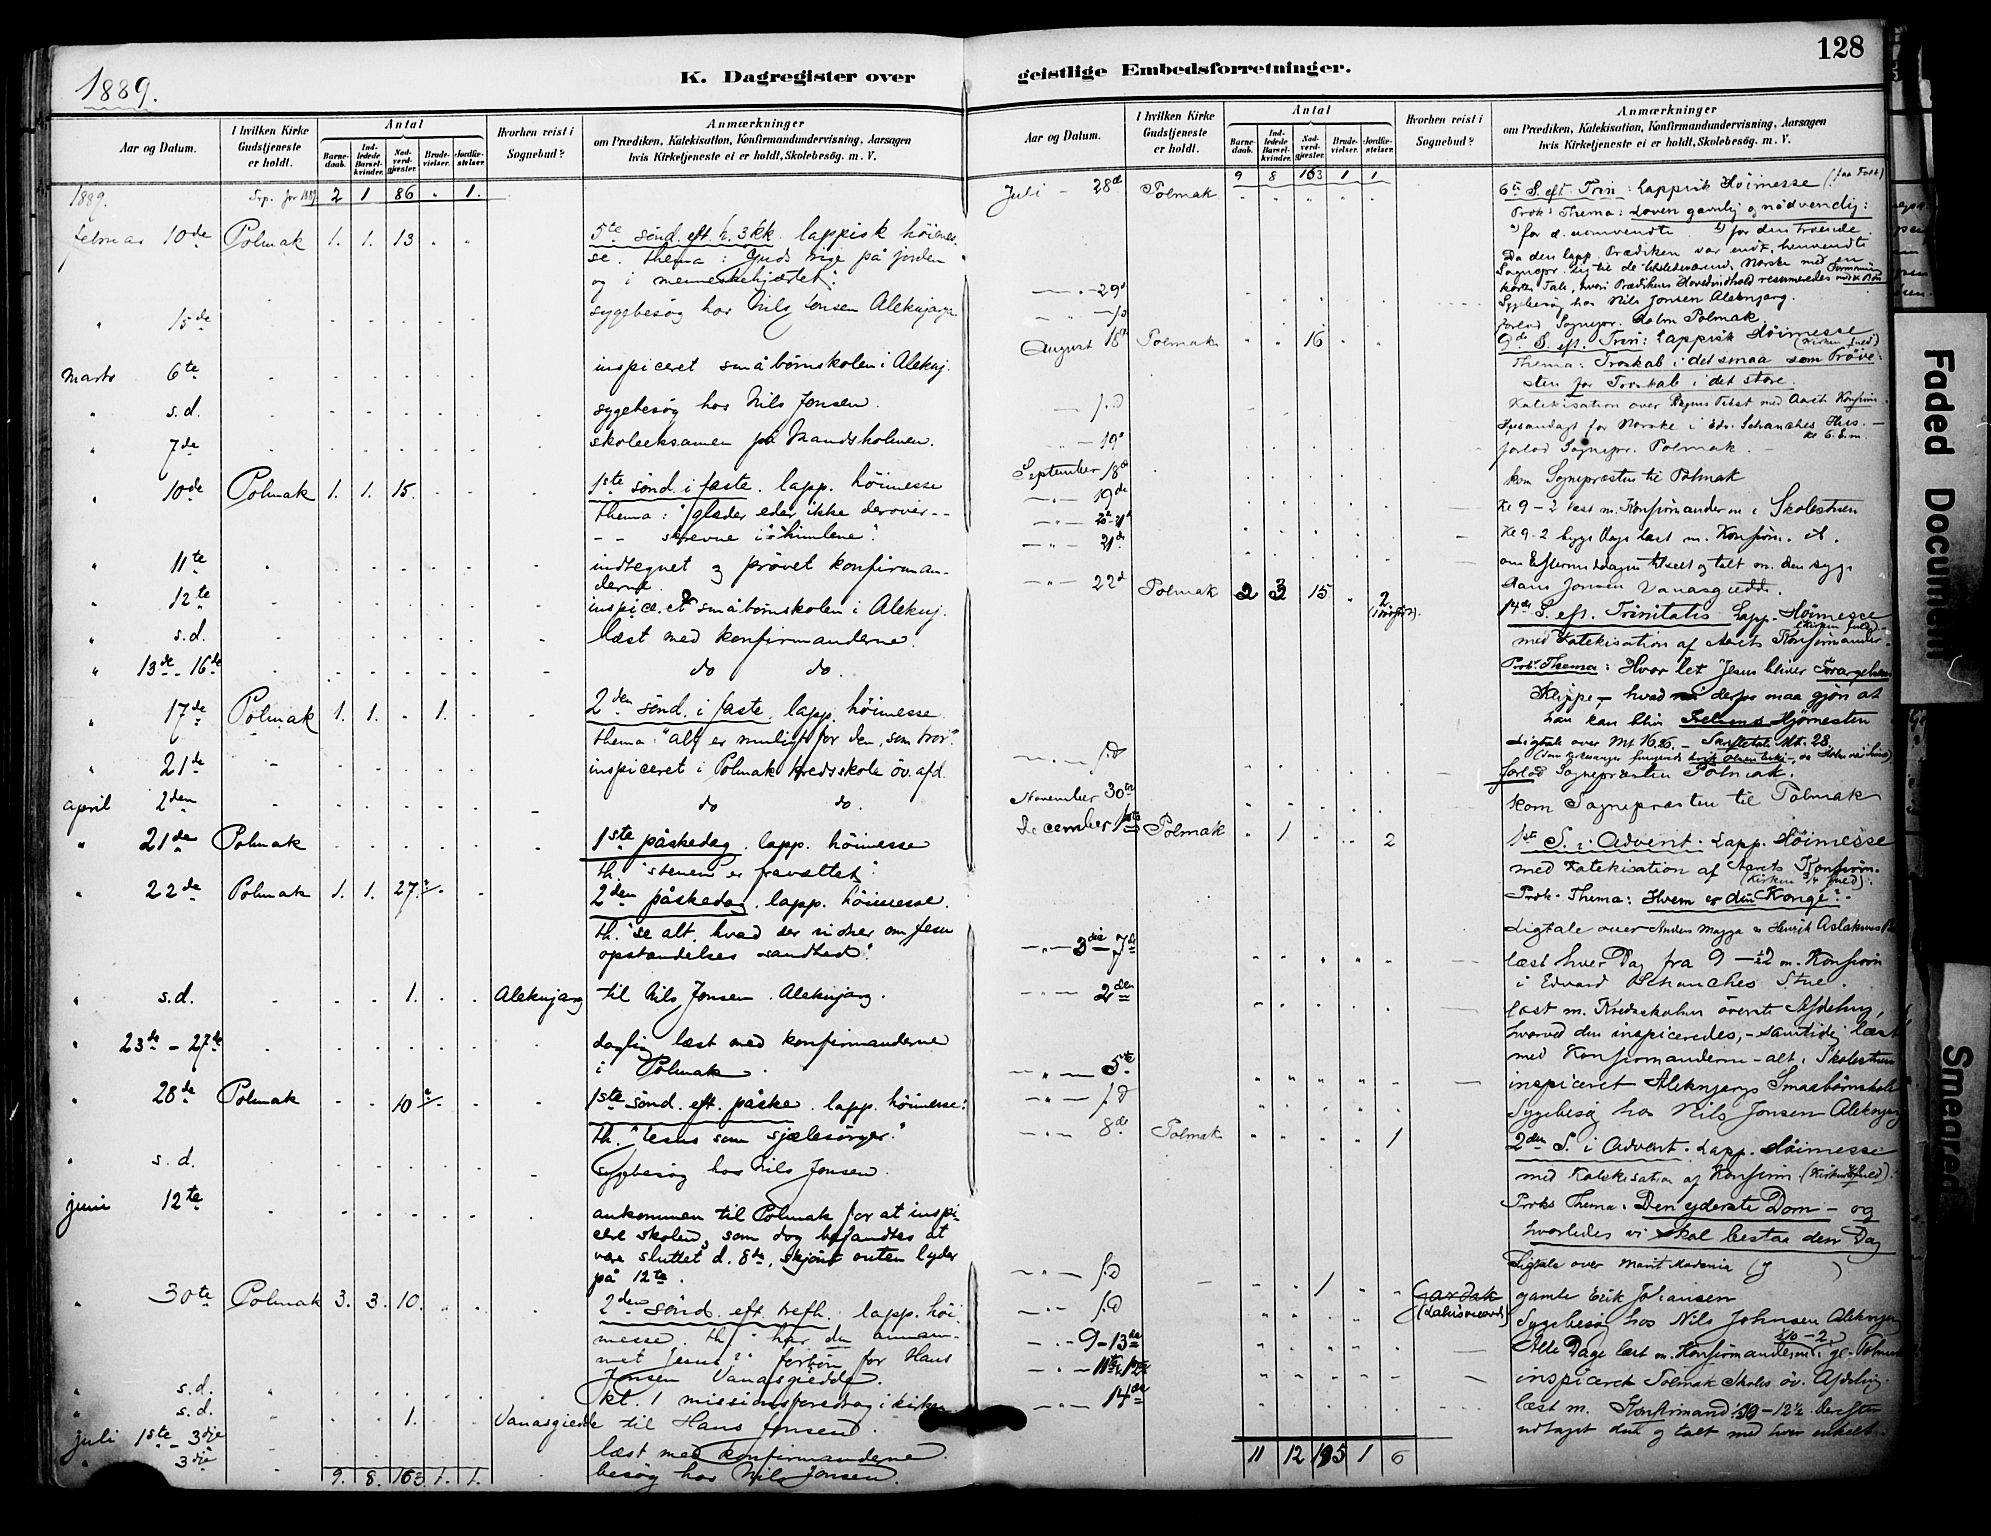 1889.
K. Dagregister over
Aar og Datum.
I hvilken Kirke Gudstjeneste er holdt.
Antal
Barne-daab.
Ind-ledede Barsel-kvinder.
Nad-verd-gjæster.
Brude-vielser.
Jordfæ-stelser.
Hvorhen reist i Sognebud?
Anmærkninger
om Prædiken, Katekisation, Konfirmandundervisning, Aarsagen
hvis Kirketjeneste ei er holdt, Skolebesøg. m. V.
1889. 2 1 86 " 1.
februar 10de Polmak 1. 1. 13 5te sønd. eft. h. 3 kk. lappisk høimes-
se. Thema: Guds rige på jorden
og i menneskehjærtet.
" 15de sygebesøg hos Nils Jonsen Aleknjarg
Marts 6te inspiceret småbørnskolen i Aleknj.
" s.d. sygebesøg hos Nils Jonsen.
" 7de skoleeksamen på
" 10de Polmak 1. 1. 15. 1ste sønd. i faste. lapp. høimesse
thema: "glæder eder ikke derover --
-- skrevne i himlene".
" 11te indtegnet og prøvet konfirman-
derne.
" 12te småbørnskolen i Aleknj.
" s.d. læst med konfirmanderne.
" 13de - 16de do do.
" 17de Polmak 1. 1. 1. 2den sønd. i faste. lapp. høimesse
thema: "alt er muligt for den, som tror".
" 21de inspiceret i Polmak kredsskole öv. afd.
april 2den do do.
" 21de Polmak 1ste påskedag. lapp. høimesse
th. "stenen er fravæltet".
" 22de Polmak 1. 1. 27. 2den påskedag. lapp. høimesse.
th. "se alt, hvad der vidner om Jesu
opstandelses sandhed".
" s.d. 1. Aleknjarg til Nils Jonsen. Aleknjarg.
" 23de - 27de daglig læst med konfirmanderne
i Polmak.
" 28de Polmak 10 1ste sønd. eft. påske. lapp. høimesse.
th. "Jesus som sjælesørger."
" s.d. sygebesøg hos Nils Jonsen.
juni 12te ankommen til Polmak for at inspi-
cere skolen, som dog befandtes at
være sluttet d. 8de, skjönt ruten lyder
på 12te.
" 30te Polmak 3. 3. 10. 2den sønd. eft. trefh. lapp. høi-
messe. th. "har du annam-
met Jesus?" forbøn for Hans
Jonsen Vanasgiedde.
" s.d. kl. 1 missionsforedrag i kirken
" s.d. 1. Vanasgiedde til Hans Jonsen.
juli 1ste - 3dje læst med konfirmanderne
" 3die besøg hos Nils Jonsen.
9. 8. 163 1. 1.
128
geistlige Embedsforretninger.
Aar og Datum.
I hvilken Kirke Gudstjeneste er holdt.
Antal
Barne-daab.
Ind-ledede Barsel-kvinder.
Nad-verd-gjæster.
Brude-vielser.
Jordfæ-stelser.
Hvorhen reist i Sognebud?
Anmærkninger
om Prædiken, Katekisation, Konfirmandundervisning, Aarsagen
hvis Kirketjeneste ei er holdt, Skolebesøg. m. V.
9 8 163 1 1
Juli - 28de Polmak 6te S. eft. Trin: Lappisk Høimesse
Thema: Loven gavnlig og nødvendig:
for d. uomvendte for den troende.
Da den lapp. Prædiken var endt henvendte
Sognepr. sig til de tilstedeværend. Norske med en
kort Tale, hvori Prædikens Hovedindhold resumeredes
— " — 29de Sygebesøg hos Nils Jonsen Aleknjarg.
— " — s.d. forlod Sognepr. Polmak.
August 18de Polmak 16 9de S. eft. Trin: Lappisk Høimesse
Thema: Troskab i det smaa som Prøve-
sten for Troskab i det store.
Katekisation over Dagens Tekst med Aarets Konfirm.
— s.d. Husandagt for Norske i Edv. Schanches Hus.
— 19de forlod Sognepr. Polmak.
September 18de kom Sognepræsten til Polmak
— " — 19de Kl 9 - 2 læst m. Konfirmanderne i Skolestuen
— " — 20de - 21de Kl 9 - 2 begge Dage læst m. Konfirm.
— " — 21de om Eftermiddagen tilseet og talt m. den syge
Hans Jonsen Vanasgiedde.
— " — 22de Polmak 2 3 15 2 14de S. eft. Trinitatis Lapp. Høimesse
med Katekisation af Aarets Konfirmander.
Thema: Hvor let Jesus bliver Forargelsens
Klippe, - hvad derfor maa gjøres at
han kan blive Frelsens Hjørnesten
Ligtale over Mt 16,26. - Skriftetale Mt. 28.
— " — s.d. forlod Sognepræsten Polmak.
November 30te kom Sognepræsten til Polmak
December 1ste Polmak 1 2 1ste S. i Advent. Lapp. Høimesse
med Katekisation af Aarets Konfirm.
Thema: Hvem er din Konge?
Ligtale over Anders Magga og Henrik Aslaksens
— " — 3die - 7de læst hver Dag fra 9 - 12 m. Konfirm
i Edvard Schanches Stue.
— " — 2den læst m. Kredsskolens øverste Afdeling,
hvorved den inspiceredes, - samtidig læst
med Konfirmanderne - alt i Skolestuen
— " — 5te inspiceret Aleknjargs Smaabørnskole
— " — s.d. Sygebesøg hos Nils Jonsen Aleknjarg
— " — 8de Polmak 1 2den S. i Advent. Lapp. Høimesse
med Katekisation af Konfirm
Thema: Den yderste Dom - og
hvorledes vi skal bestaa den Dag
Ligtale over Marit
— " — s.d. 1 gamle Erik Johansen
— " — s.d. Sygebesøg hos Nils Johnsen Aleknjarg
— " - 9-13de Alle Dage læst m. Konfirmanderne i gl. Polmak
— " — 11te, 12te inspiceret Polmak Skoles øv. Afdeling.
— " — 14de læst m. Konfirmand - 12½ derefter
udtaget dem og talt med hver enkelt.
11 12 195 1 6
Faded Document
Smeared